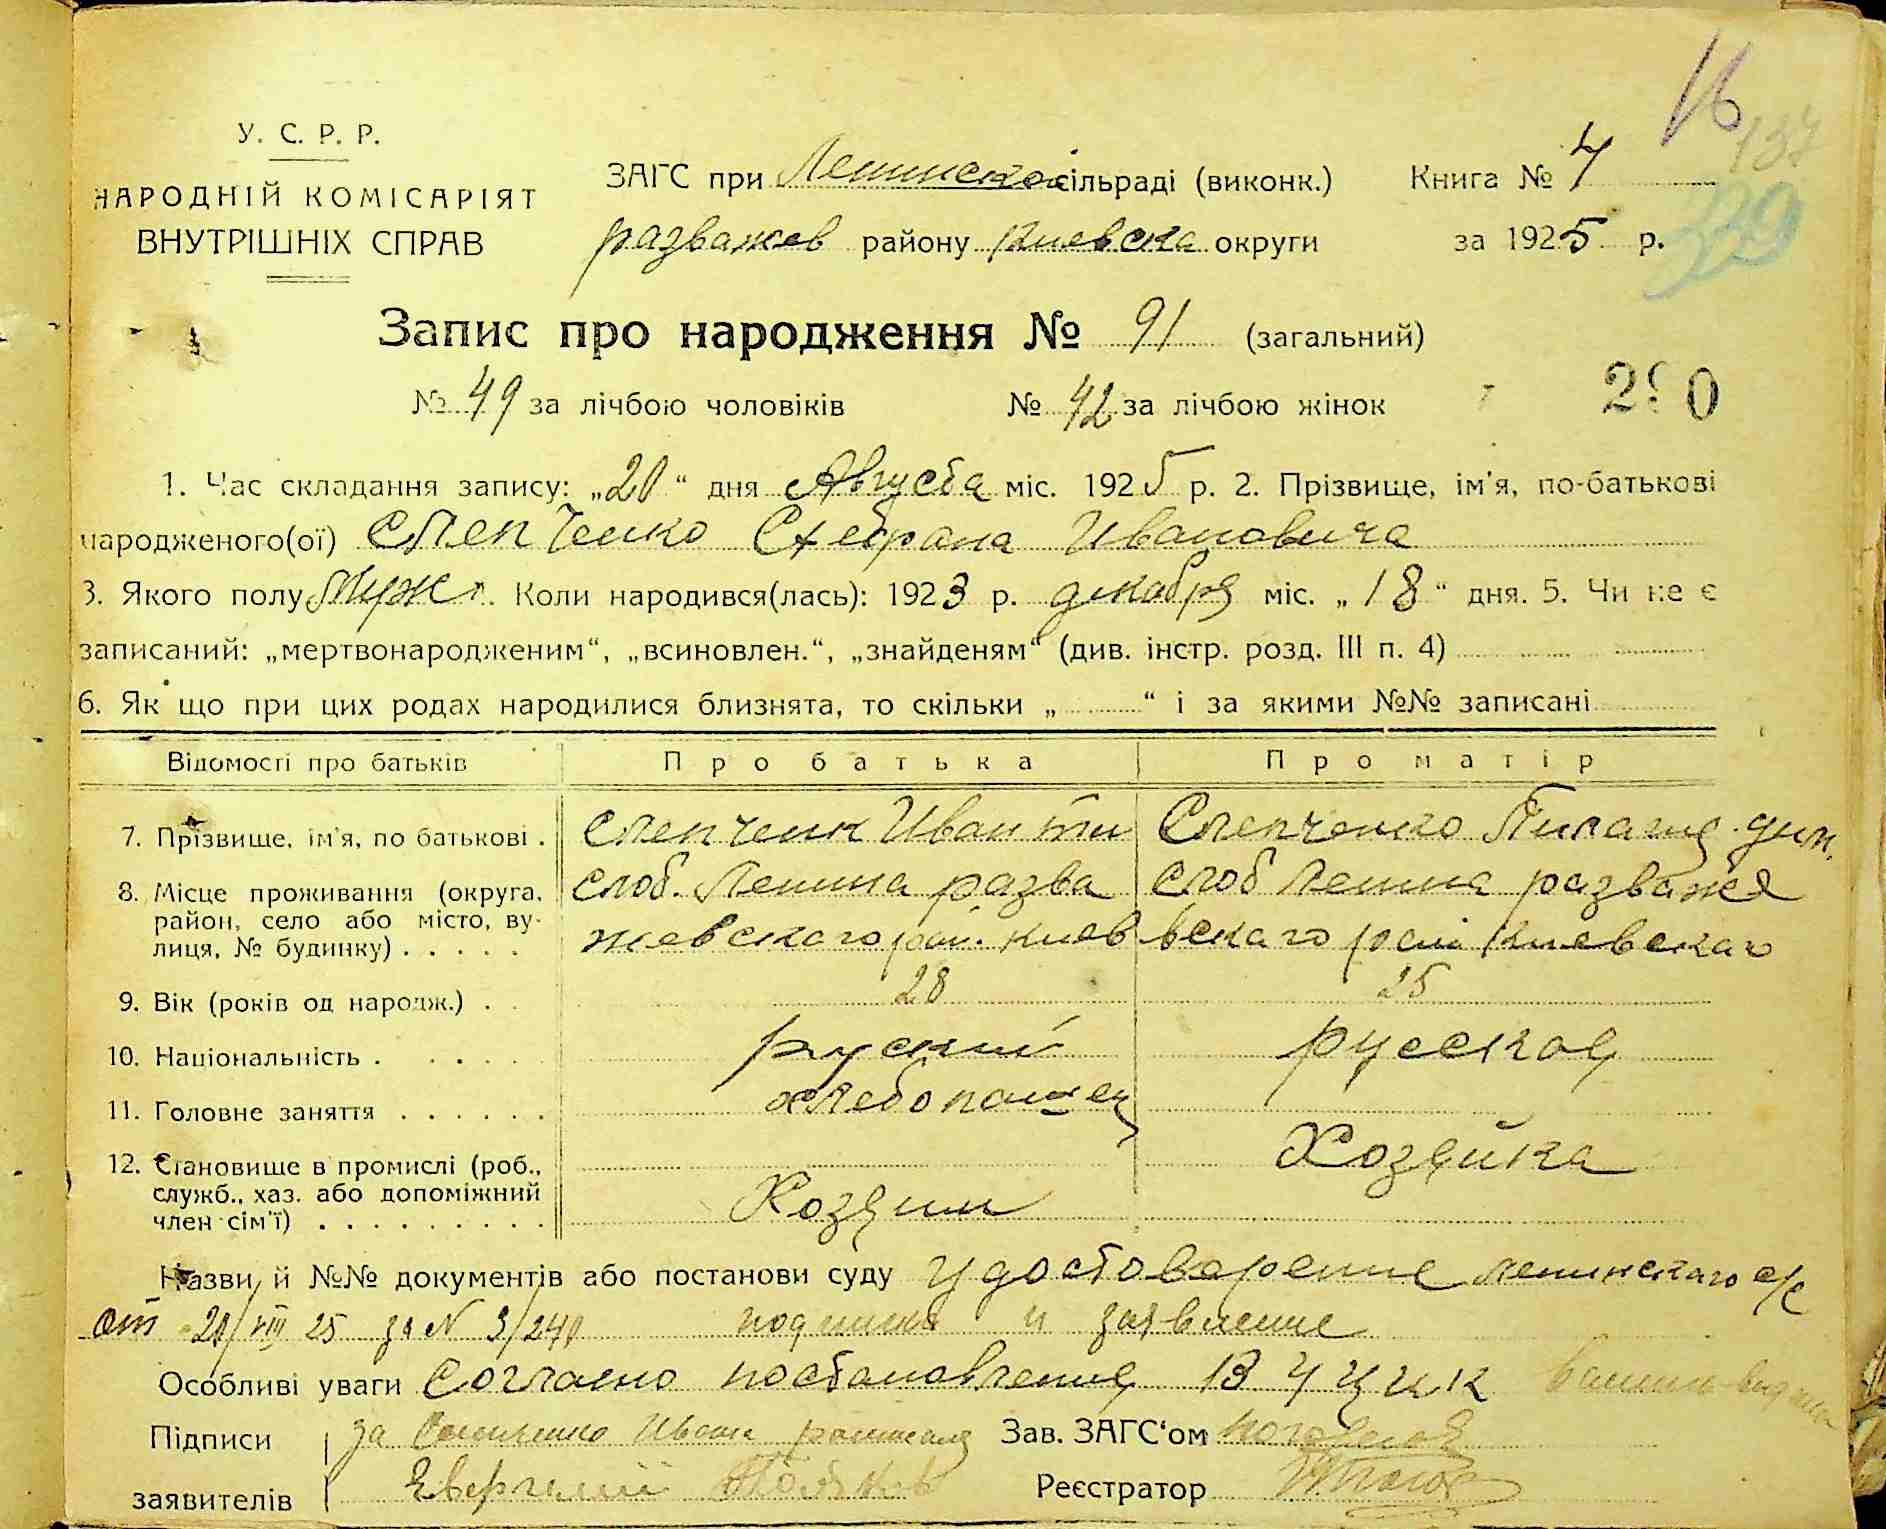 16
137
339
У. С. Р. Р.
НАРОДНІЙ КОМІСАРІЯТ
ВНУТРІШНІХ СПРАВ
ЗАГС при Ленинско сільраді (виконк.) Книга № 4
разважев району Киевска округи за 1925 р.
Запис про народження № 91 (загальний)
№ 49 за лічбою чоловіків № 42 за лічбою жінок
290
1. Час складання запису: „20“ дня Августа міс. 1925 р. 2. Прізвище, ім'я, по-батькові
народженого(ої) Слепченко Стефана Ивановича
3. Якого полу Муж. Коли народився(лась): 1923 р. декабря міс. „18“ дня. 5. Чи не є
записаний: „мертвонародженим“, „всиновлен.“, „знайденям“ (див. інстр. розд. III п. 4)
6. Як що при цих родах народилися близнята, то скільки „ “ і за якими №№ записані
Відомості про батьків Про батька Про матір
7. Прізвище, ім'я, по батькові . Слепченк Иван Ти Слепченко Пилагия дим.
8. Місце проживання (округа, слоб. Ленина разва слоб Ленина разважя
район, село або місто, ву-
лиця, № будинку) . . . . . жевскаго рай. киев вскаго рай Киевскаго
9. Вік (років од народж.) . 28 25
10. Національність . . . . . руский русская
11. Головне заняття . . . . . . хлебопашец
12. Становище в промислі (роб., Хозяйка
служб., хаз. або допоміжний
член сім'ї) . . . . . . . . . Хозяин
Назви й №№ документів або постанови суду удостоверение ленинскаго с/с
от 20/VIII 25 за N 3/240 подписка и заявление
Особливі уваги Согласно постановления ВУЦИК
Підписи за Слепченко Ивана Зав. ЗАГС'ом
заявителів Реєстратор